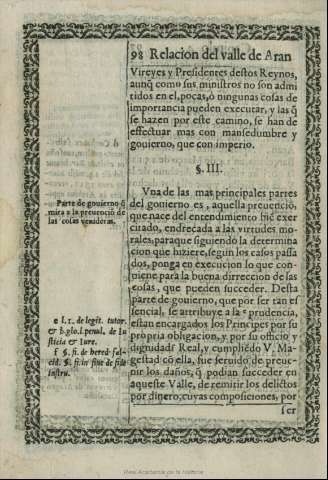 98 Relacion del valle de Aran
Vireyes y Presidentes destos Reynos,
aunq̃ como sus ministros no son admi
tidos en el, pocas, ò ningunas cosas de
importancia pueden executar, y las q̃
se hazen por este camino, se han de
effectuar mas con mansedumbre y
gouierno, que con imperio.
§. III.
Vna de las mas principales partes
del gouierno es, aquella preuenciõ,
que nace del entendimiento biẽ exer
citado, endreçada a las virtudes mo-
rales, para que siguiendo la determina
cion que hiziere, segun los casos passa
dos, ponga en execucion lo que con-
uiene para la buena dirreccion de las
cosas, que pueden succeder. Desta
parte de gouierno, que por ser tan es
sencial, se attribuye a la e prudencia,
estan encargados los Principes por su
propria obligacion, y por su officio y
dignidad f Real, y cumpliẽdo V. Ma-
gestad cõ ella, fue seruido de preue-
nir los daños, q̃ podian succeder en
aqueste Valle, de remitir los delictos
por dinero, cuyas composiciones, por
ser
Parte de gouierno q̃
mira a la preuenciõ de
las cosas venideras.
e l. 1. de legit. tutor.
& b. glo. l. penul. de Iu
sticia & iure.
f §. fi. de hered. fal-
cid. §. fi. in fine de fide
instru.
Real Academia de la Historia